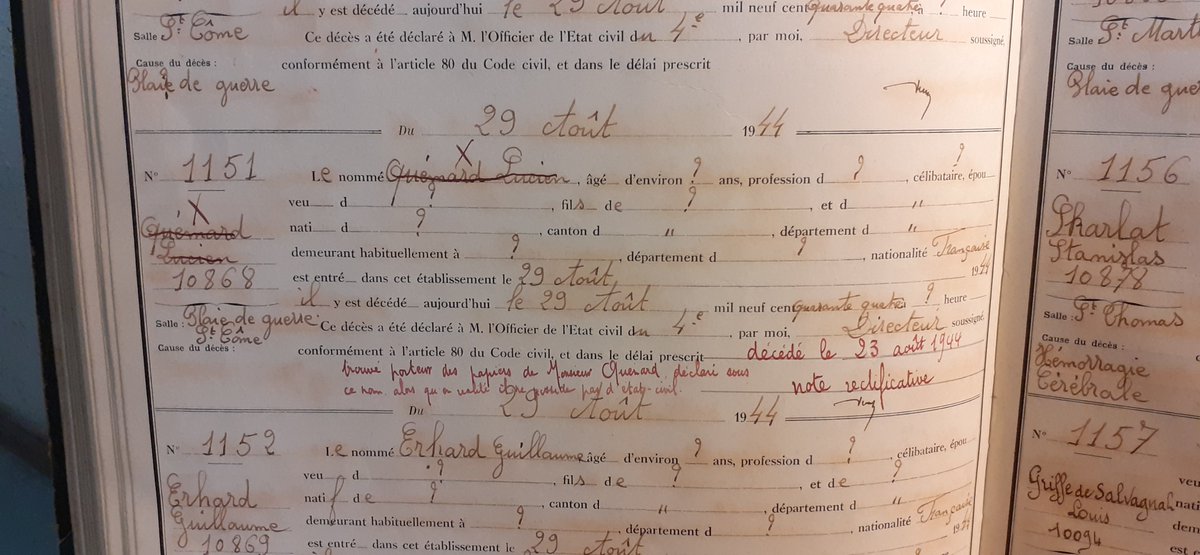 il y est décédé aujourd'hui le 29 Août mil neuf cent quarante quatre ? heure
Salle St Côme Ce décès a été déclaré à M. l'Officier de l'Etat civil du 4e, par moi, Directeur soussigné
Cause du décès : conformément à l'article 80 du Code civil, et dans le délai prescrit
Plaie de guerre
Du 29 Août 1944
N° 1151 Le nommé Quémard Lucien, âgé d'environ ? ans, profession d ?, célibataire, épou
X
?
veu d ?, fils de ?, et d "
X
Quémard
Lucien
10868
nati d ?, canton d ", département d "
demeurant habituellement à ?, département d ?, nationalité Française
est entré dans cet établissement le 29 Août 1944
il y est décédé aujourd'hui le 29 Août mil neuf cent quarante quatre ? heure
Salle : Plaie de guerre
St Côme
Ce décès a été déclaré à M. l'Officier de l'Etat civil du 4e, par moi, Directeur soussigné
Cause du décès :
conformément à l'article 80 du Code civil, et dans le délai prescrit décédé le 23 août 1944
trouvé porteur des papiers de Monsieur Quémard, déclaré sous
ce nom alors qu'en réalité d'état-civil.
note rectificative
Du 29 Août 1944
N° 1152 Le nommé Erhard Guillaume âgé d'environ ? ans, profession d ?, célibataire, épou
veu d ?, fils de ?, et de ?
Erhard
Guillaume
10869
natif de ?, canton d ", département d "
demeurant habituellement à ?, département d ?, nationalité Française
est entré dans cet établissement le 29 Août 1944
Salle : St Mart
Cause du décès :
Plaie de gue
N° 1156
Skarlat
Stanislas
10878
Salle : St Thomas
Cause du décès :
Hémorragie
Cérébrale
N° 1157
veu
Griffe de Salvagnac
Louis
10094
nati
dem
est